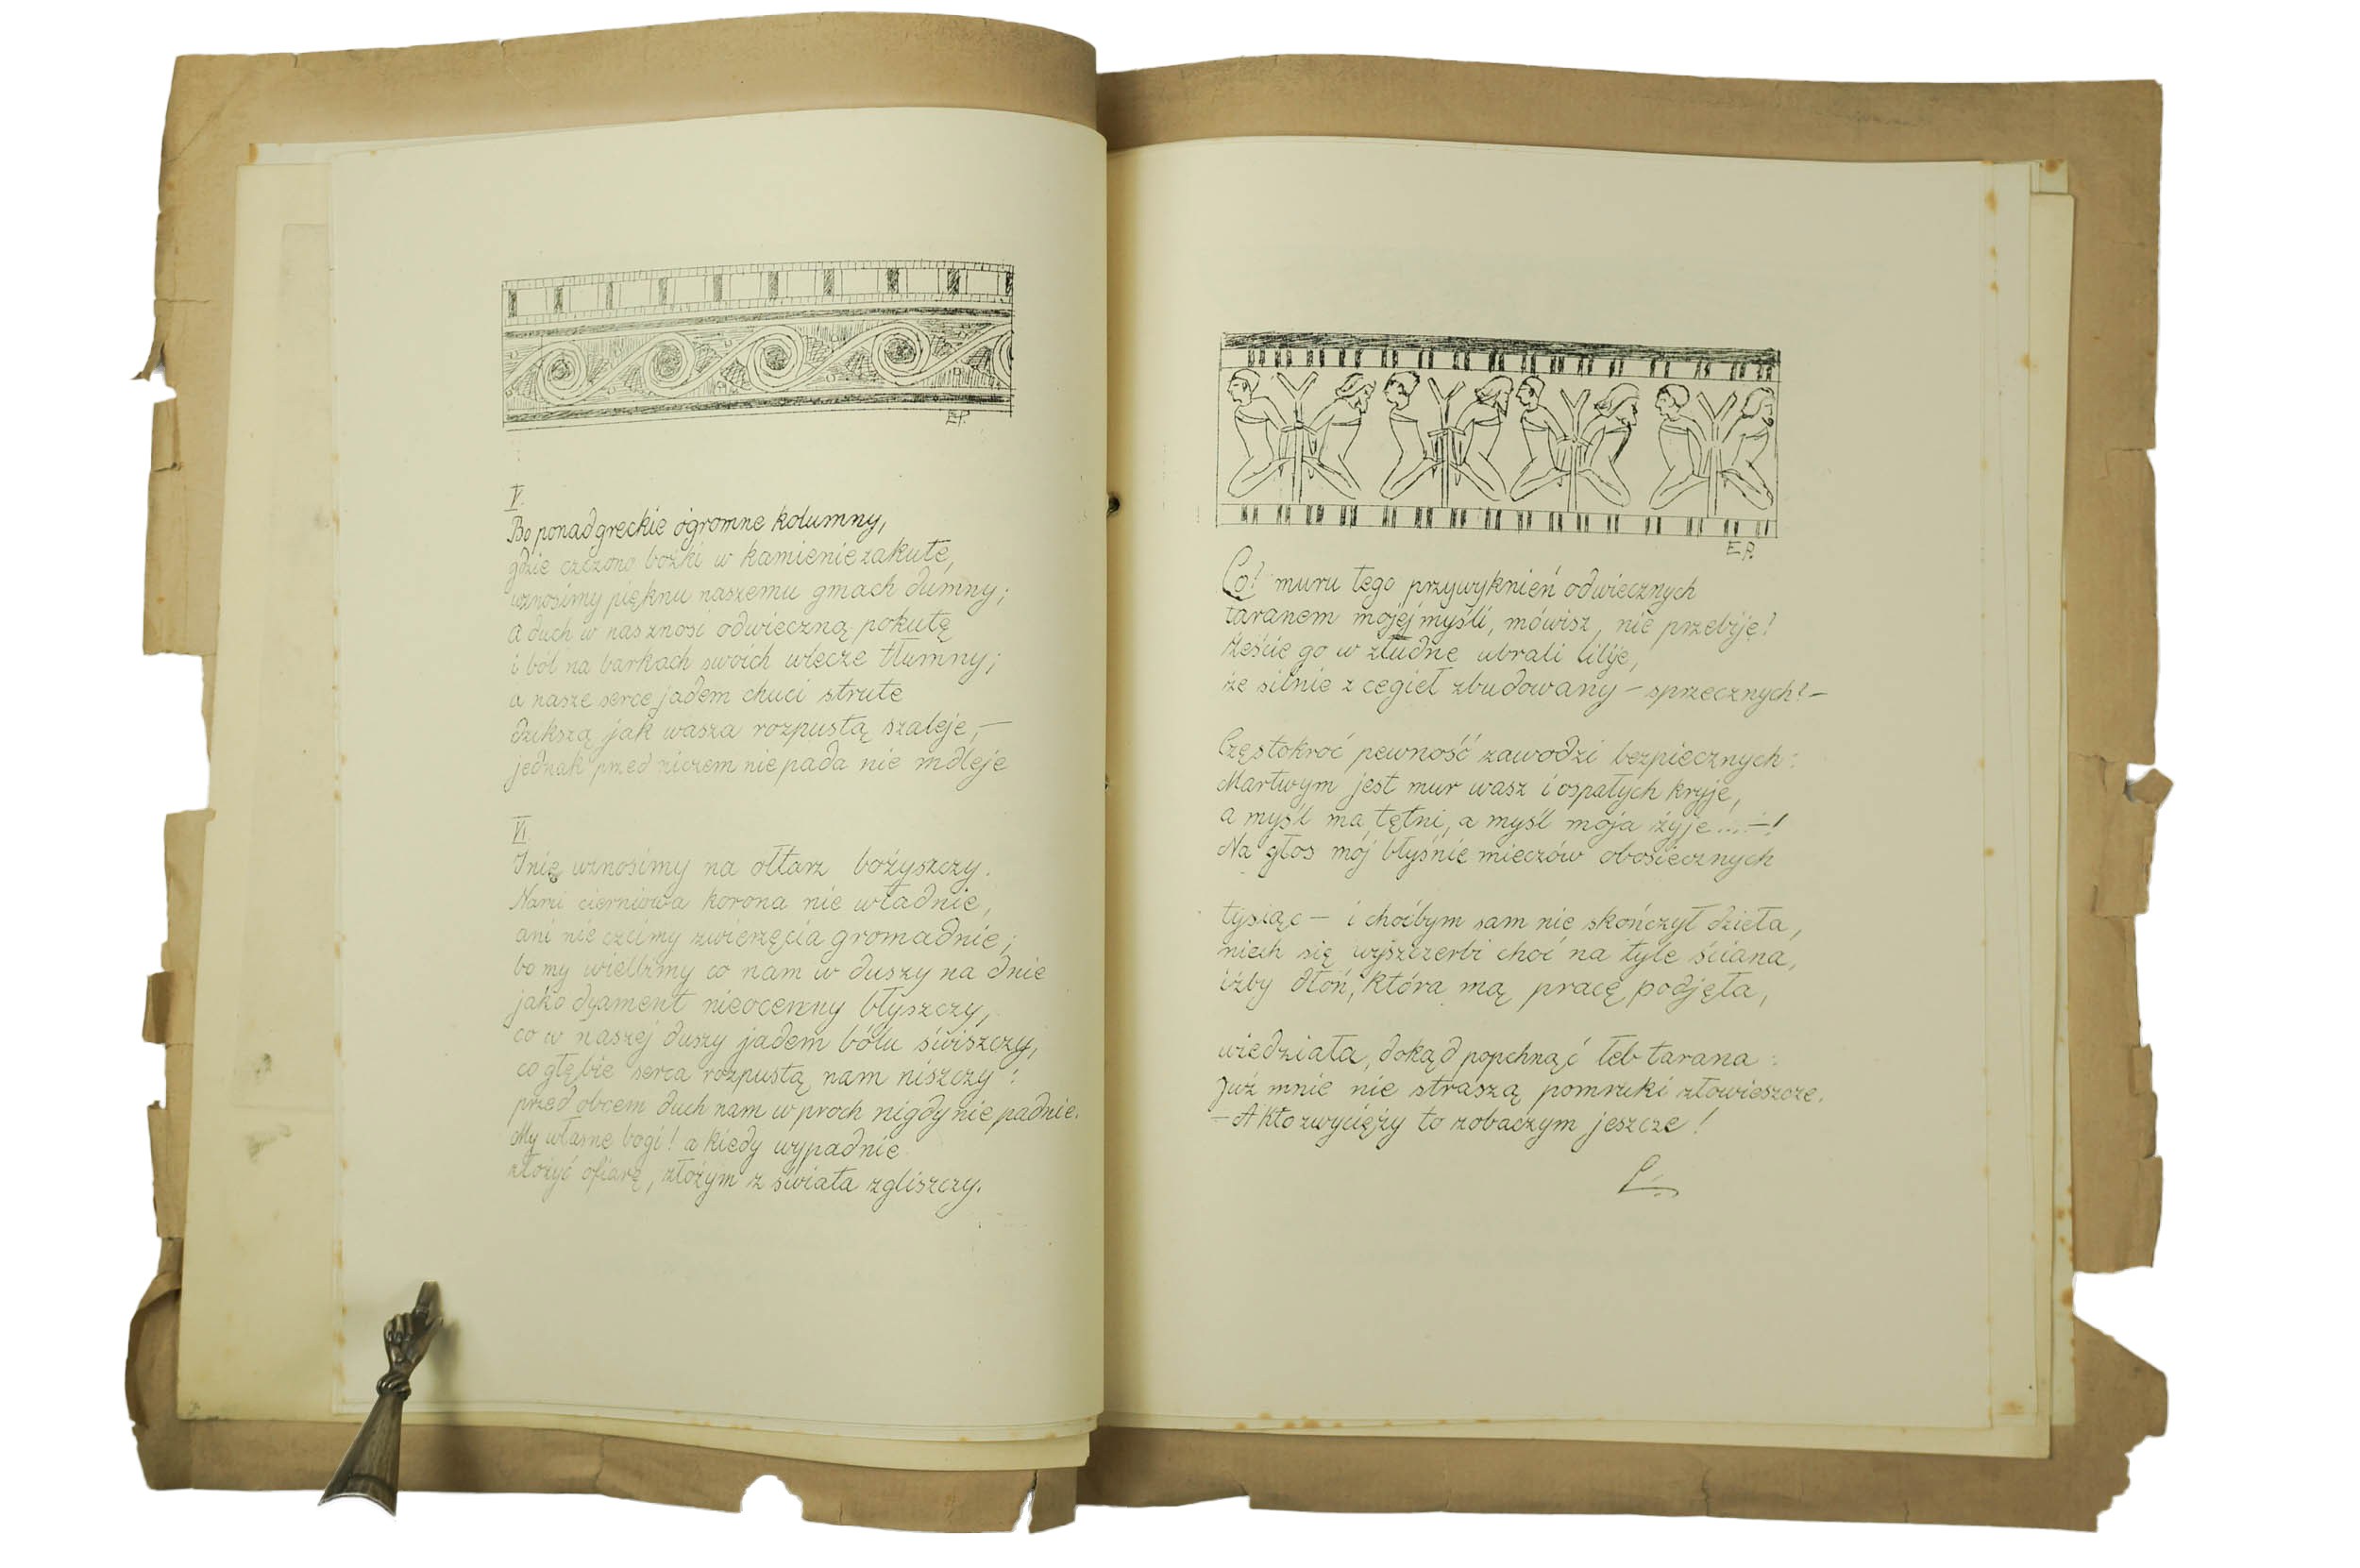 E.P.
V.
Bo ponad greckie ogromne kolumny,
gdzie czczono bożki w kamienie zakute,
wznosimy pięknu naszemu gmach dumny;
a duch w nas znosi odwieczną pokutę
i ból na barkach swoich wlecze tłumny;
a nasze serce jadem chuci strute
dzikszą jak wasza rozpustą szaleje, —
jednak przed niczem nie pada nie mdleje
VI.
I nie wznosimy na ołtarz bożyszczy.
Nami cierniowa korona nie władnie,
ani nie czcimy zwierzęcia gromadnie;
bo my wielbimy co nam w duszy na dnie
jako dyament nieocenny błyszczy,
co w naszej duszy jadem bólu świszczy,
co głębie serca rozpustą nam niszczy:
przed obcem duch nam w proch nigdy nie padnie.
My własne bogi! a kiedy wypadnie
złożyć ofiarę, złożym z świata zgliszczy.
E.P.
Co? muru tego przywyknień odwiecznych
taranem mojej myśli, mówisz, nie przebiję?
Żeście go w złudne ubrali lilije,
że silnie z cegieł zbudowany — sprzecznych? —
Częstokroć pewność zawodzi bezpiecznych:
Martwym jest mur wasz i ospałych kryje,
a myśl ma tętni, a myśl moja żyje ... — !
Na głos mój błyśnie mieczów obosiecznych
tysiąc — i choćbym sam nie skończył dzieła,
niech się wyszczerbi choć na tyle ściana,
iżby dłoń, która mą pracę podjęła,
wiedziała, dokąd popchnąć łeb tarana:
Już mnie nie straszą pomruki złowieszcze.
— A kto zwycięży to zobaczym jeszcze!
L.